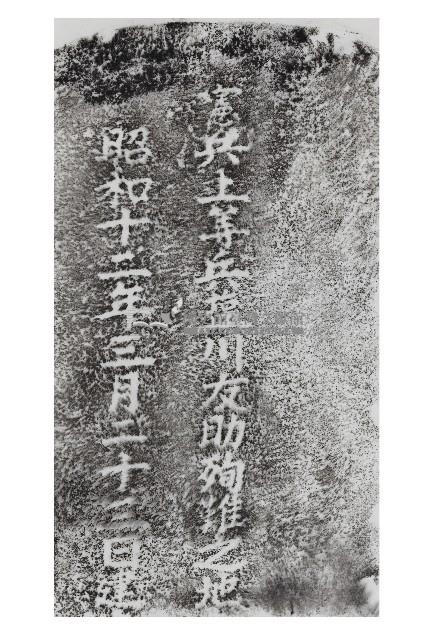 憲兵上等兵川友助殉難之地
昭和十二年三月二十日建